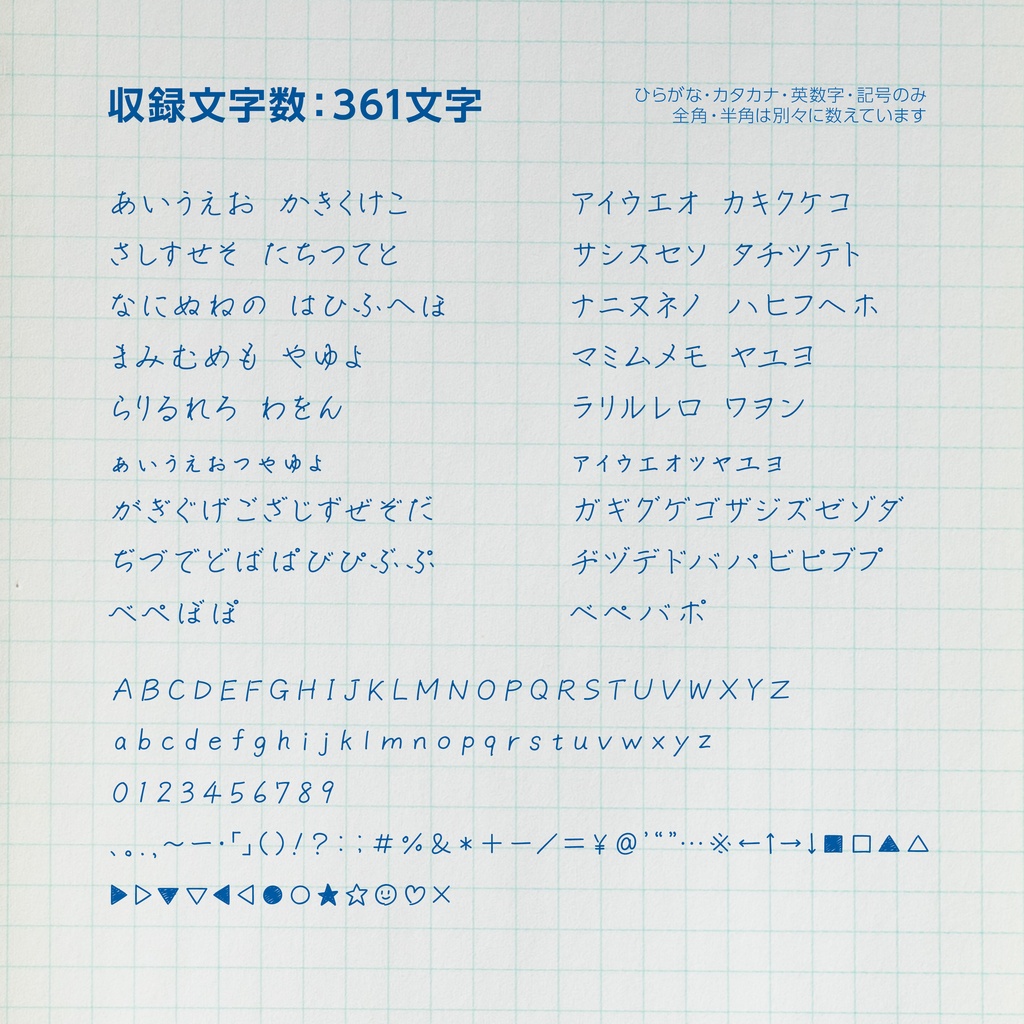 収録文字数：361文字
ひらがな・カタカナ・英数字・記号のみ
全角・半角は別々に数えています
あいうえお かきくけこ
さしすせそ たちつてと
なにぬねの はひふへほ
まみむめも やゆよ
らりるれろ わをん
ぁぃぅぇぉっゃゅょ
がぎぐげござじずぜぞだ
ぢづでどばぱびぴぶぷ
べぺぼぽ
アイウエオ カキクケコ
サシスセソ タチツテト
ナニヌネノ ハヒフヘホ
マミムメモ ヤエヨ
ラリルレロ ワヲン
ァィゥェォッャェョ
ガギグゲゴザジズゼゾダ
ヂヅデドバパビピブプ
ベペバポ
ABCDEFGHIJKLMNOPQRSTUVWXYZ
abcdefghijklmnopqrstuvwxyz
0123456789
、。.,～ー・「」()!?：;#%&*+－/=¥@’“”…※←↑→↓■□▲△
▶▷▼▽◀◁●○★☆☺♡×